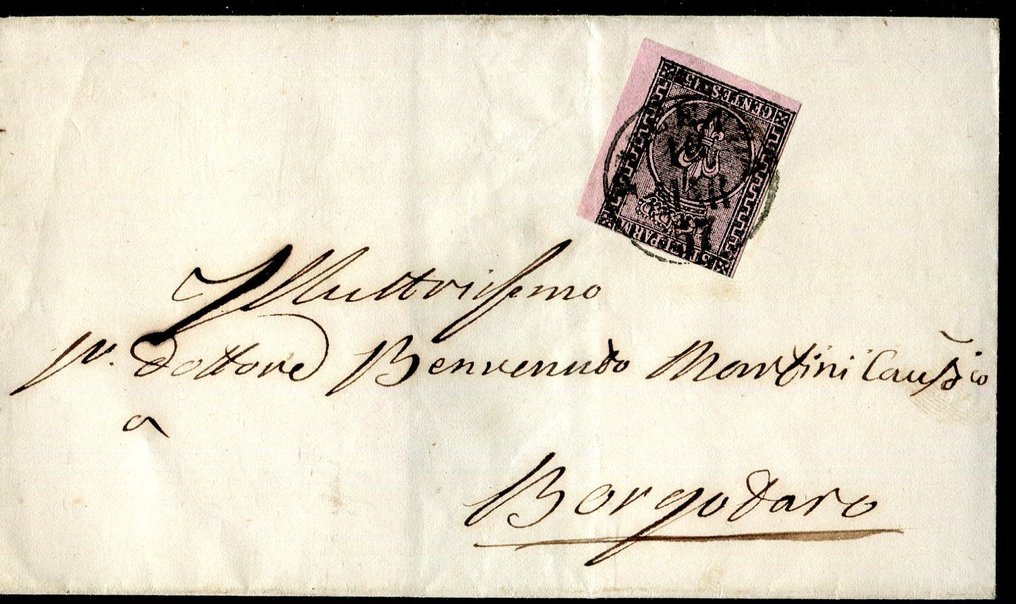 CENTES. 15
STATI PARM
Illustrissimo
Sr. Dottore Benvenuto Martini
a
Borgotaro